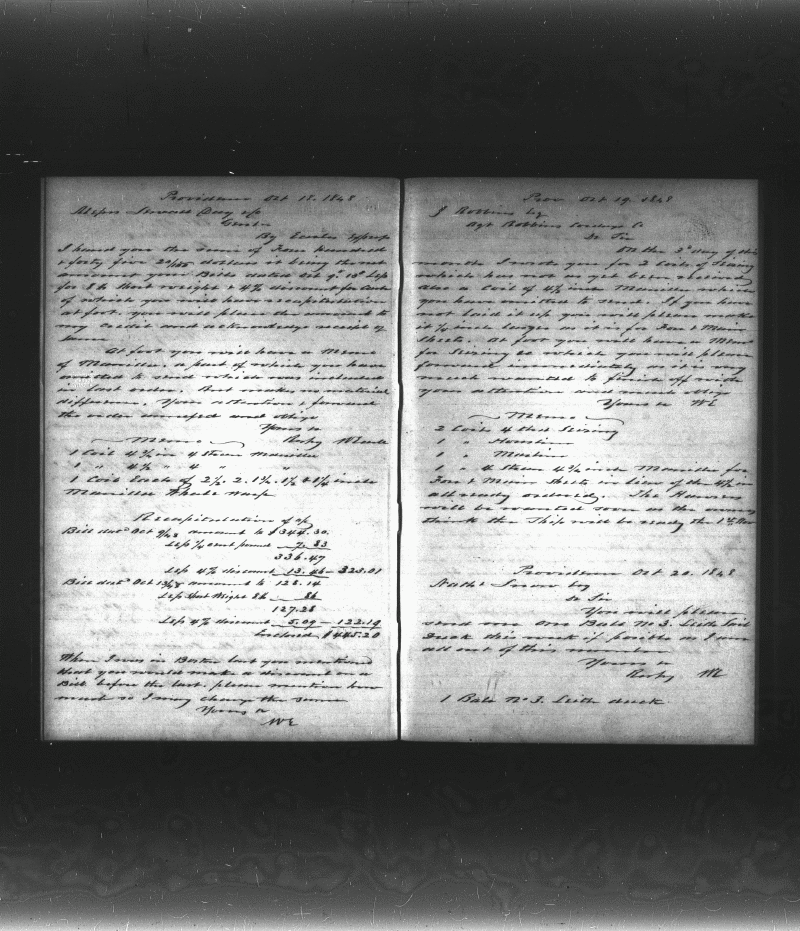 Providence Oct 18. 1848
Messrs Sewall Day & Co
Gents
By Earls Express
I hand you the sum of Four hundred
& forty five 20/100 dollars it being the net
amount your Bills dated Oct 9. 13th Less
for Sht weight & 4% discount for Cash
of which you will have recapitulation
at foot. you will please the amount to
my credit and acknowledge receipt of
same
At foot you will have a Memo
of Manilla. a part of which you have
omitted to send which was included
in last order. But makes no material
difference. Your attention & forward
the order annexed and oblige
Yours &c
Respy
Memo
1 Coil 4¾ in 4 Strem Manilla
1 " 4¼ " 4 " "
1 Coil Each of 2½. 2. 1¾. 1½ & 1¼ inch
Manilla Wheel Warp
Recapitulation
Bill dat Oct 9/48 amount to $344.30.
Less 7.83
336.47
Less 4% discount 13.46 - 323.01
Bill dated Oct 13/48 amount to 128.14
Less Short Weight 86
127.28
Less 4% discount 5.09 - 122.19
Enclosed $445.20
When I was in Boston last you mentioned
that you would make a discount on a
Bill before the last. please mention how
much so I may change the same
Yours &c
WE
Prov Oct 19. 1848
J Robbins Esq
Agt Robbins Cordage Co
Dr Sir
On the 3d day of this
month I wrote you for 2 Coils of Seizing
which has not as yet been received
also a Coil of 4¾ inch Manilla which
you have omitted to send. If you have
not laid it up you will please make
it ¼ inch larger as it is for Fore & Main
Sheets. At foot you will have a Memo
for Seizing &c which you will please
forward immediately as it is very
much wanted to finish off with
your attention will much oblige
Yours &c WE
Memo
2 Coils 4 thd Seizing
1 " Houseline
1 " Marline
1 " 4 Stran 4¾ inch Manilla for
Fore & Main Sheets in lieu of the 4½ in
all ready ordered. The Hawsers
will be wanted soon as the owners
think the Ship will be ready the 1st Nov
Providence Oct 20. 1848
Nathl Snow Esq
Dr Sir
You will please
send me One Bale No 3. Leith Sail
Duck this week if posible as I am
all out of this number
Yours &c
Respy WE
1 Bale No 3. Leith duck